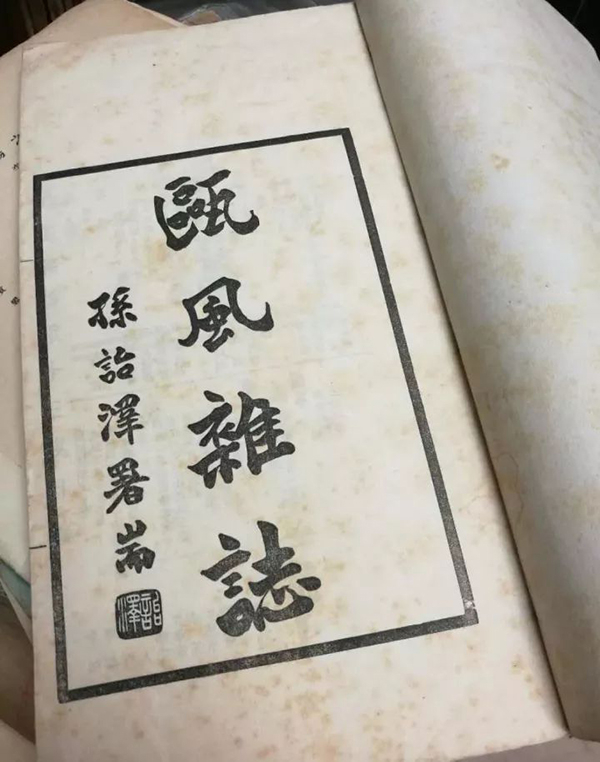 甌風雜誌
孫詒澤署耑
詒澤